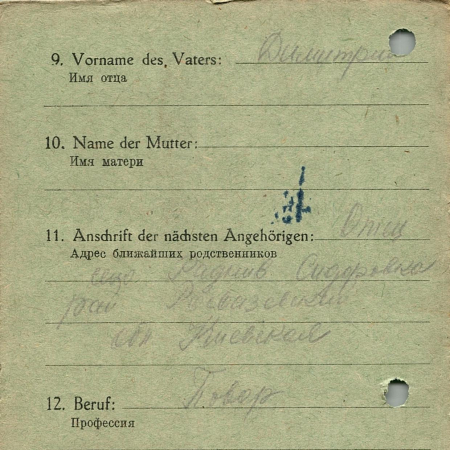 9. Vorname des Vaters: Димитрий
Имя отца
10. Name der Mutter:
Имя матери
11. Anschrift der nächsten Angehörigen:
Адрес ближайших родственников
село
рай
обл Киевская
12. Beruf: Повар
Профессия